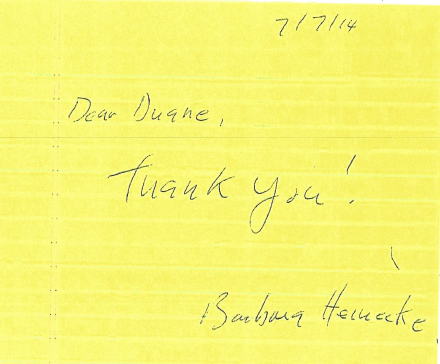 7/7/14
Dear Duane,
Thank you!
Barbara Heinecke